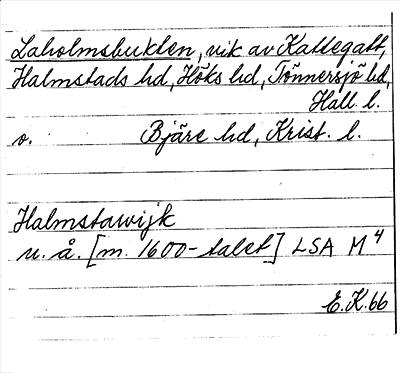 Laholmsbukten, vik av Kattegatt,
Halmstads hd, Höks hd, Tönnersjö hd,
Hall. l.
o. Bjäre hd, Krist. l.
Halmstawijk
u. å. [m. 1600-talet] LSA M 4
E.K. 66